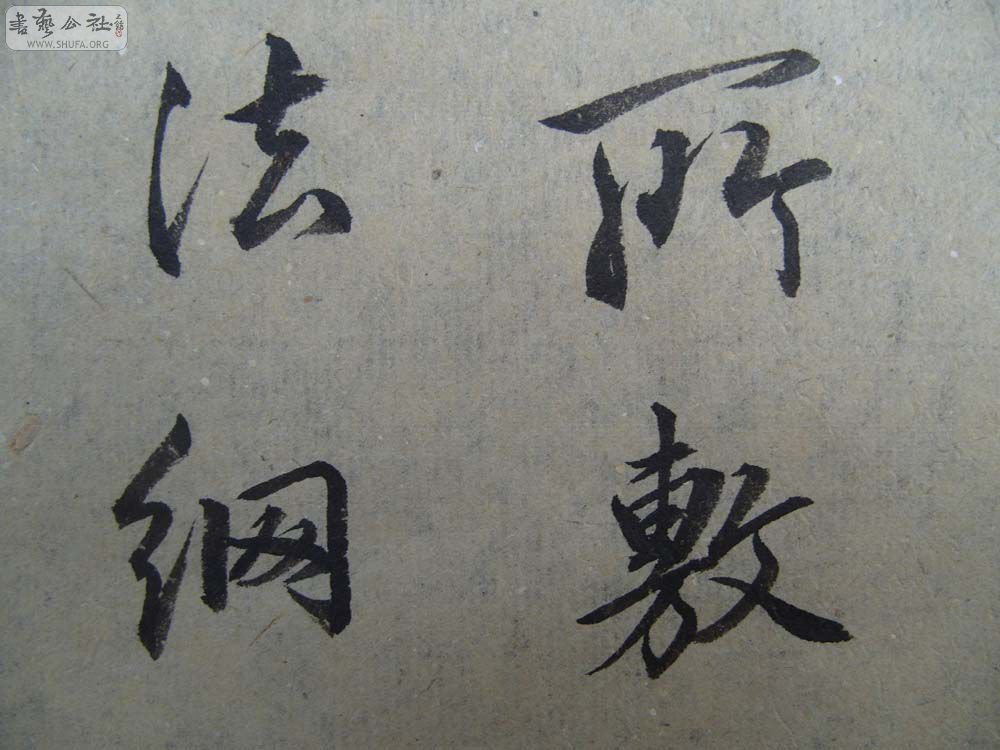 所敷
法網
書藝公社
WWW.SHUFA.ORG